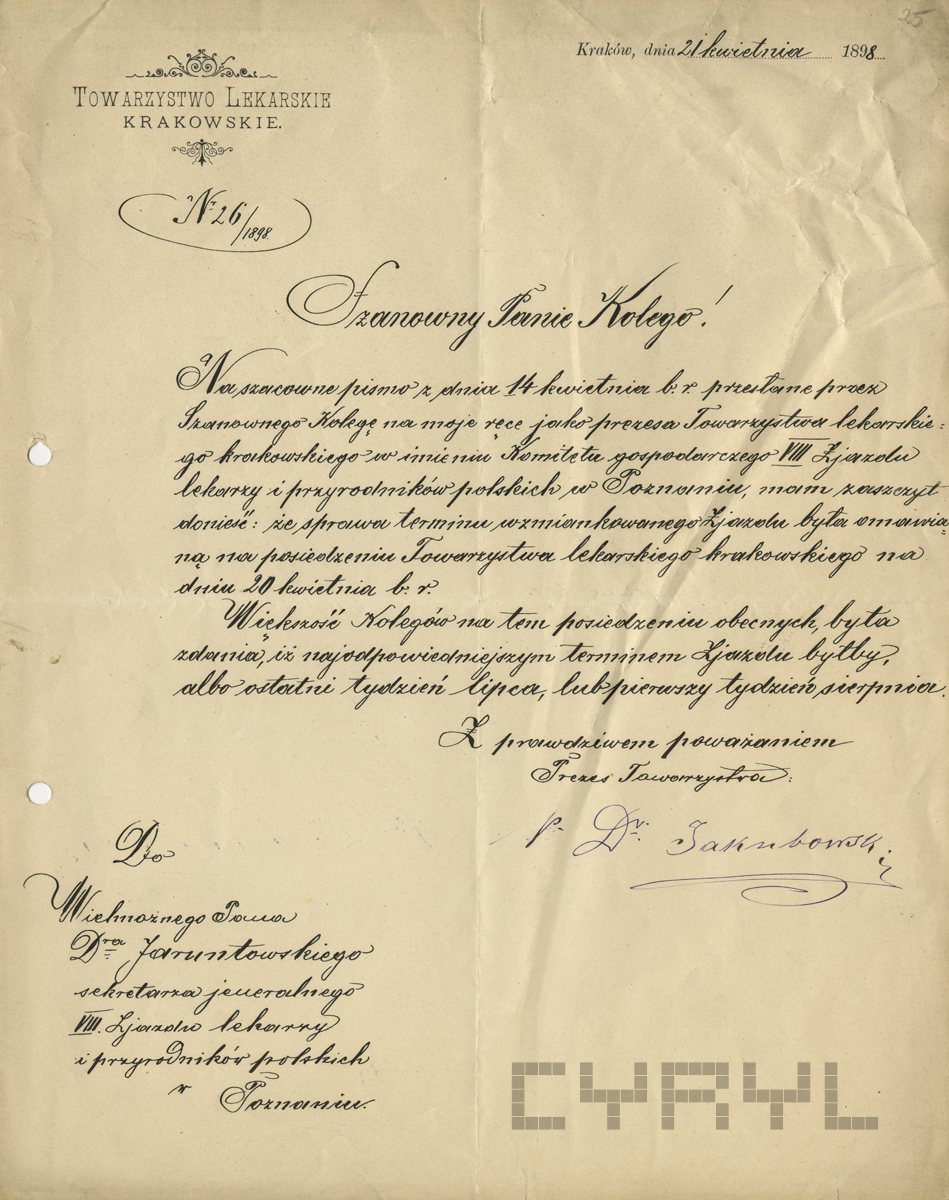 25
Kraków, dnia 21 kwietnia 1898
TOWARZYSTWO LEKARSKIE
KRAKOWSKIE.
Nr 26/1898.
Szanowny Panie Kolego!
Na szacowne pismo z dnia 14 kwietnia b. r. przesłane przez
Szanownego Kolegę na moje ręce jako prezesa Towarzystwa lekarskie=
go krakowskiego w imieniu Komitetu gospodarczego VIII Zjazdu
lekarzy i przyrodników polskich w Poznaniu, mam zaszczyt
donieść: że sprawa terminu wzmiankowanego Zjazdu była omawia=
ną na posiedzeniu Towarzystwa lekarskiego krakowskiego na
dniu 20 kwietnia b. r.
Większość Kolegów na tem posiedzeniu obecnych, była
zdania, iż najodpowiedniejszym terminem Zjazdu byłby,
albo ostatni tydzień lipca, lub pierwszy tydzień sierpnia.
Z prawdziwem poważaniem
Prezes Towarzystwa:
Dr. Jakubowski
Do
Wielmożnego Pana
Dra Jaruntowskiego
sekretarza jeneralnego
VIII. Zjazdu lekarzy
i przyrodników polskich
w Poznaniu.
CYRYL